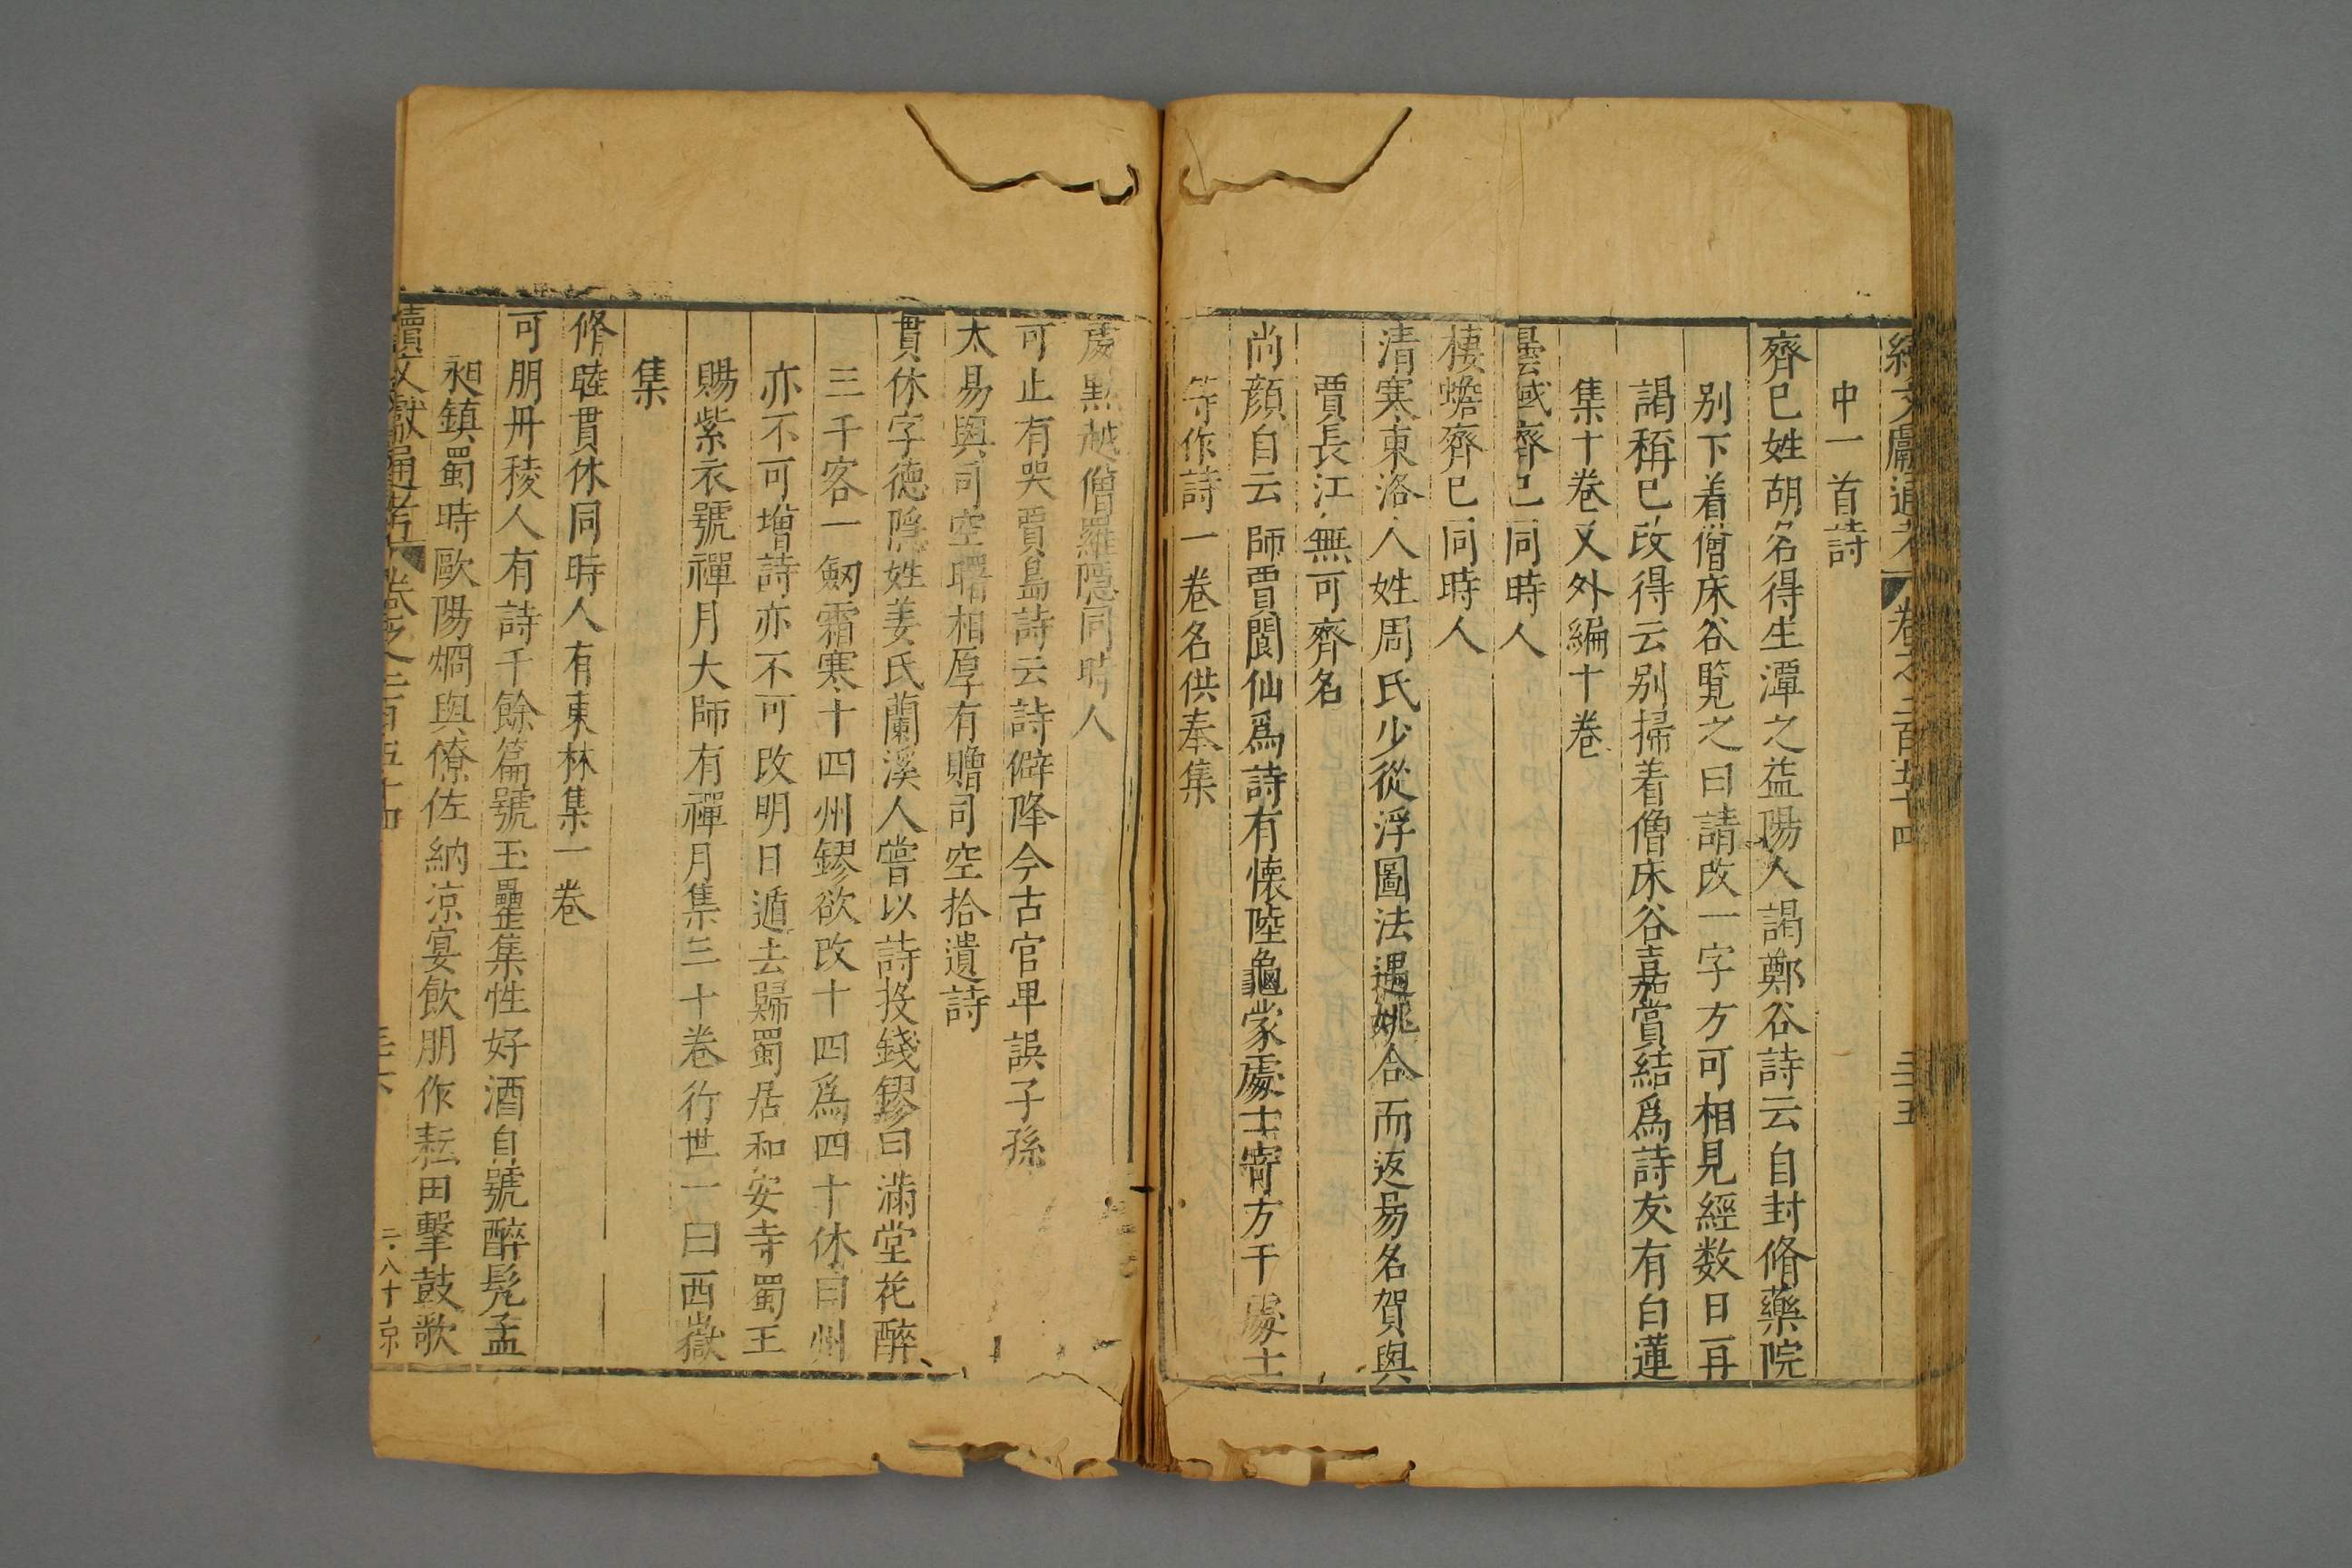 續文獻通考 卷之二百五十四 三十五
中一首詩
齊已姓胡名得生潭之益陽人謁鄭谷詩云自封脩藥院
别下着僧床谷覽之曰請改一字方可相見經数日再
謁稱已改得云别掃着僧床谷嘉賞結爲詩友有白蓮
集十卷又外編十卷
曇域齊已同時人
棲蟾齊已同時人
清寒東洛人姓周氏少從浮圖法遇姚合而返易名賀與
賈長江無可齊名
尚顔自云師賈閬仙爲詩有懐陸龜蒙處士寄方干處士
等作詩一卷名供奉集
處黙越僧羅隱同時人
可止有哭賈島詩云詩僻降今古官卑誤子孫
太易與司空曙相厚有贈司空拾遺詩
貫休字德隱姓姜氏蘭溪人嘗以詩投錢鏐曰滿堂花醉
三千客一劒霜寒十四州鏐欲改十四爲四十休曰州
亦不可增詩亦不可改明日遁去歸蜀居和安寺蜀王
賜紫衣號禪月大師有禪月集三十卷行世一曰西嶽
集
脩睦貫休同時人有東林集一卷
可朋丹稜人有詩千餘篇號玉壘集性好酒自號醉髠孟
昶鎮蜀時歐陽烱與僚佐納凉宴飲朋作耘田擊鼓歌
續文獻通考 卷之二百五十四 三十六 二八十京